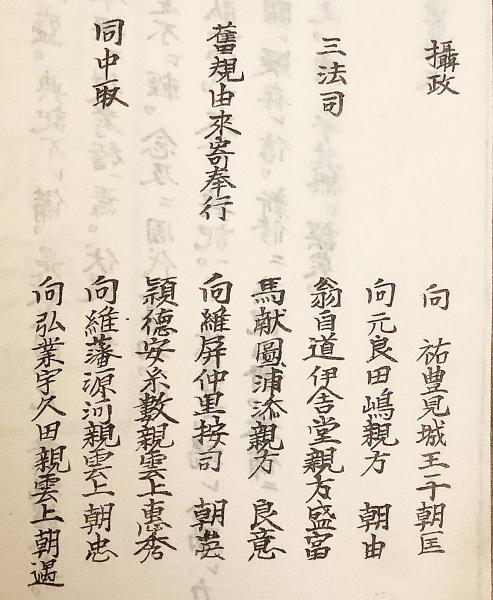 攝政　向　祐豊見城王子朝匡
向元良田嶋親方　朝由
三法司　翁自道伊舎堂親方盛富
馬献圖浦添親方　良意
舊規由來寄奉行　向維屏仲里按司　朝
穎德安糸數親雲上惠秀
同中取　向維藩源河親雲上朝忠
向弘業宇久田親雲上朝遇